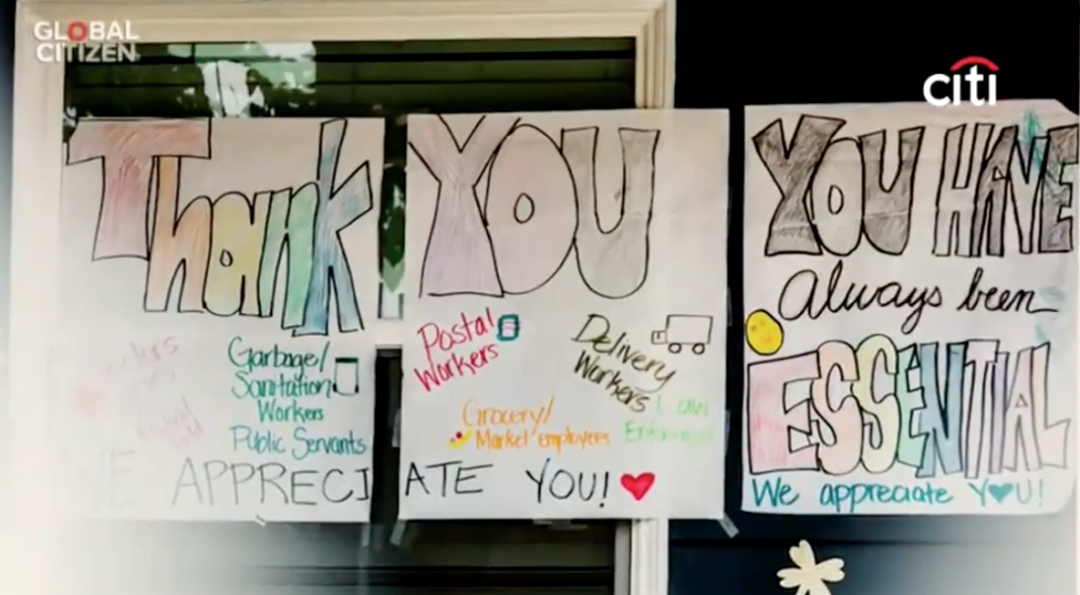 GLOBAL
CITIZEN
citi
Thank
Garbage/
Sanitation
Workers
Public Servants
YOU
Postal
Workers
Delivery
Workers
Grocery/
Market employees
Law
WE APPRECIATE YOU!
YOU HAVE
Always been
ESSENTIAL
We appreciate Y♥U!